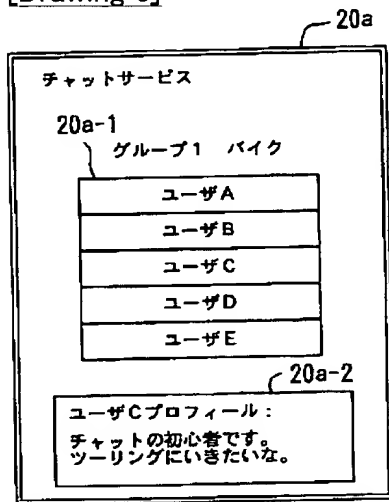 20a
チャットサービス
20a-1
グループ1 バイク
ユーザA
ユーザB
ユーザC
ユーザD
ユーザE
20a-2
ユーザCプロフィール:
チャットの初心者です。
ツーリングにいきたいな。